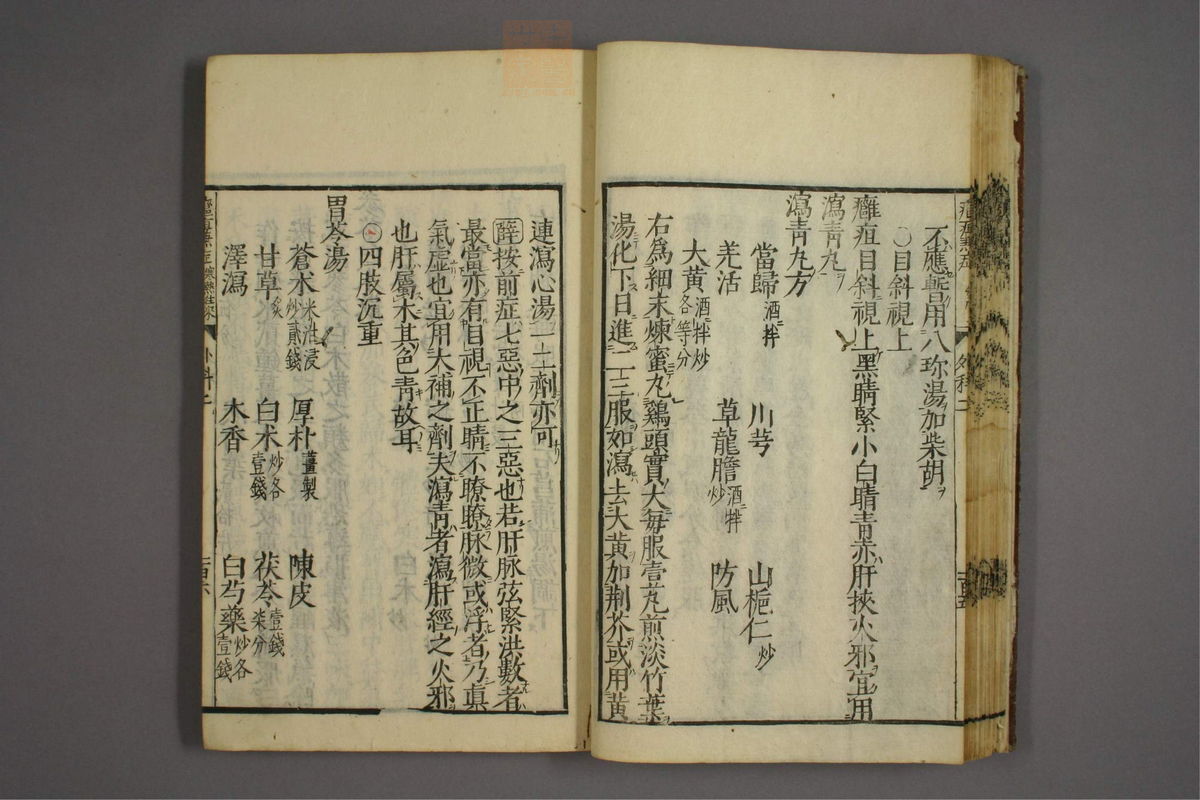 不應暫用八珍湯加柴胡
〇目斜視上
癰疽目斜視上黑睛緊小白睛青赤肝挾火邪宜用
瀉青丸
瀉青丸方
當歸酒拌 川芎 山梔仁炒
羌活 草龍膽酒拌炒 防風
大黃酒拌炒各等分
右為細末煉蜜丸鷄頭實大每服壹丸煎淡竹葉
湯化下日進二三服如瀉去大黃加荆芥或用黃
連瀉心湯一二劑亦可
薛按前症七惡中之三惡也若肝脉弦緊洪數者
最當亦有目視不正睛不瞭瞭脉微或浮者乃眞
氣虛也宜用大補之劑夫瀉青者瀉肝經之火邪
也肝屬木其色青故耳
〇四肢沉重
胃苓湯
蒼朮米泔浸炒貳錢 厚朴薑製 陳皮
甘草炙 白朮炒各壹錢 茯苓壹錢柒分
澤瀉 木香 白芍藥炒各壹錢
外科二
百六